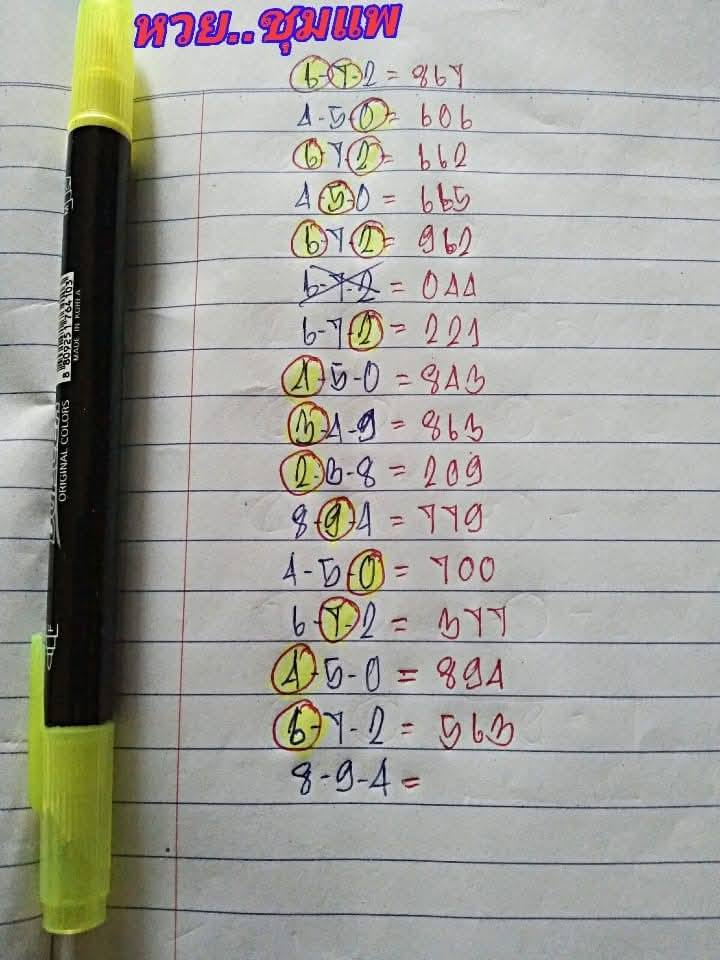 หวย..ชุมแพ
6-7-2 = 867
4-5-0 = 606
6-7-2 = 662
4-5-0 = 665
6-7-2 = 962
6-7-2 = 044
6-7-2 = 221
4-5-0 = 843
3-4-9 = 863
2-3-8 = 209
8-9-4 = 779
4-5-0 = 700
6-7-2 = 377
4-5-0 = 894
6-7-2 = 563
8-9-4 =
8 809251 764103
MADE IN KOREA
ORIGINAL COLORS